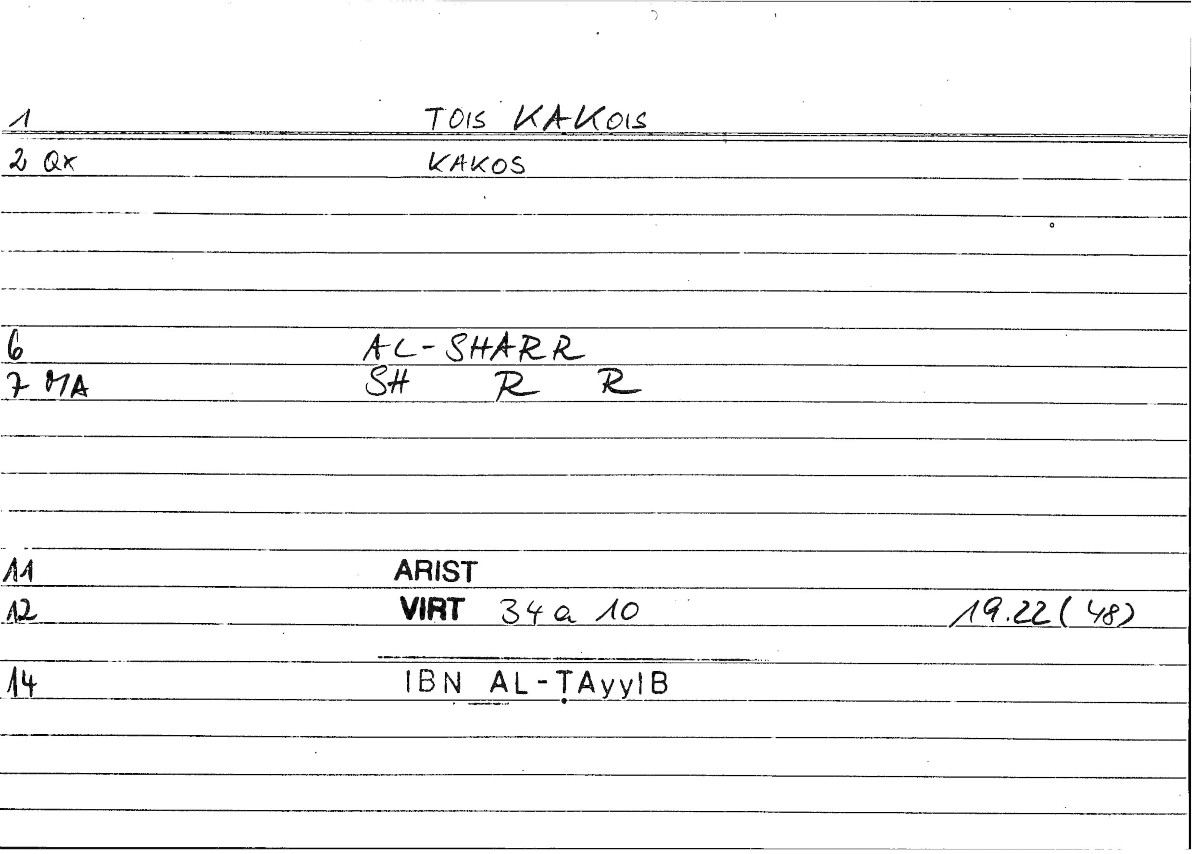 1 TOIS KAKOIS
2 QX KAKOS
6 AL-SHARR
7 MA SH R R
11 ARIST
12 VIRT 34 a 10 19.22 (48)
14 IBN AL-ṬAyyIB